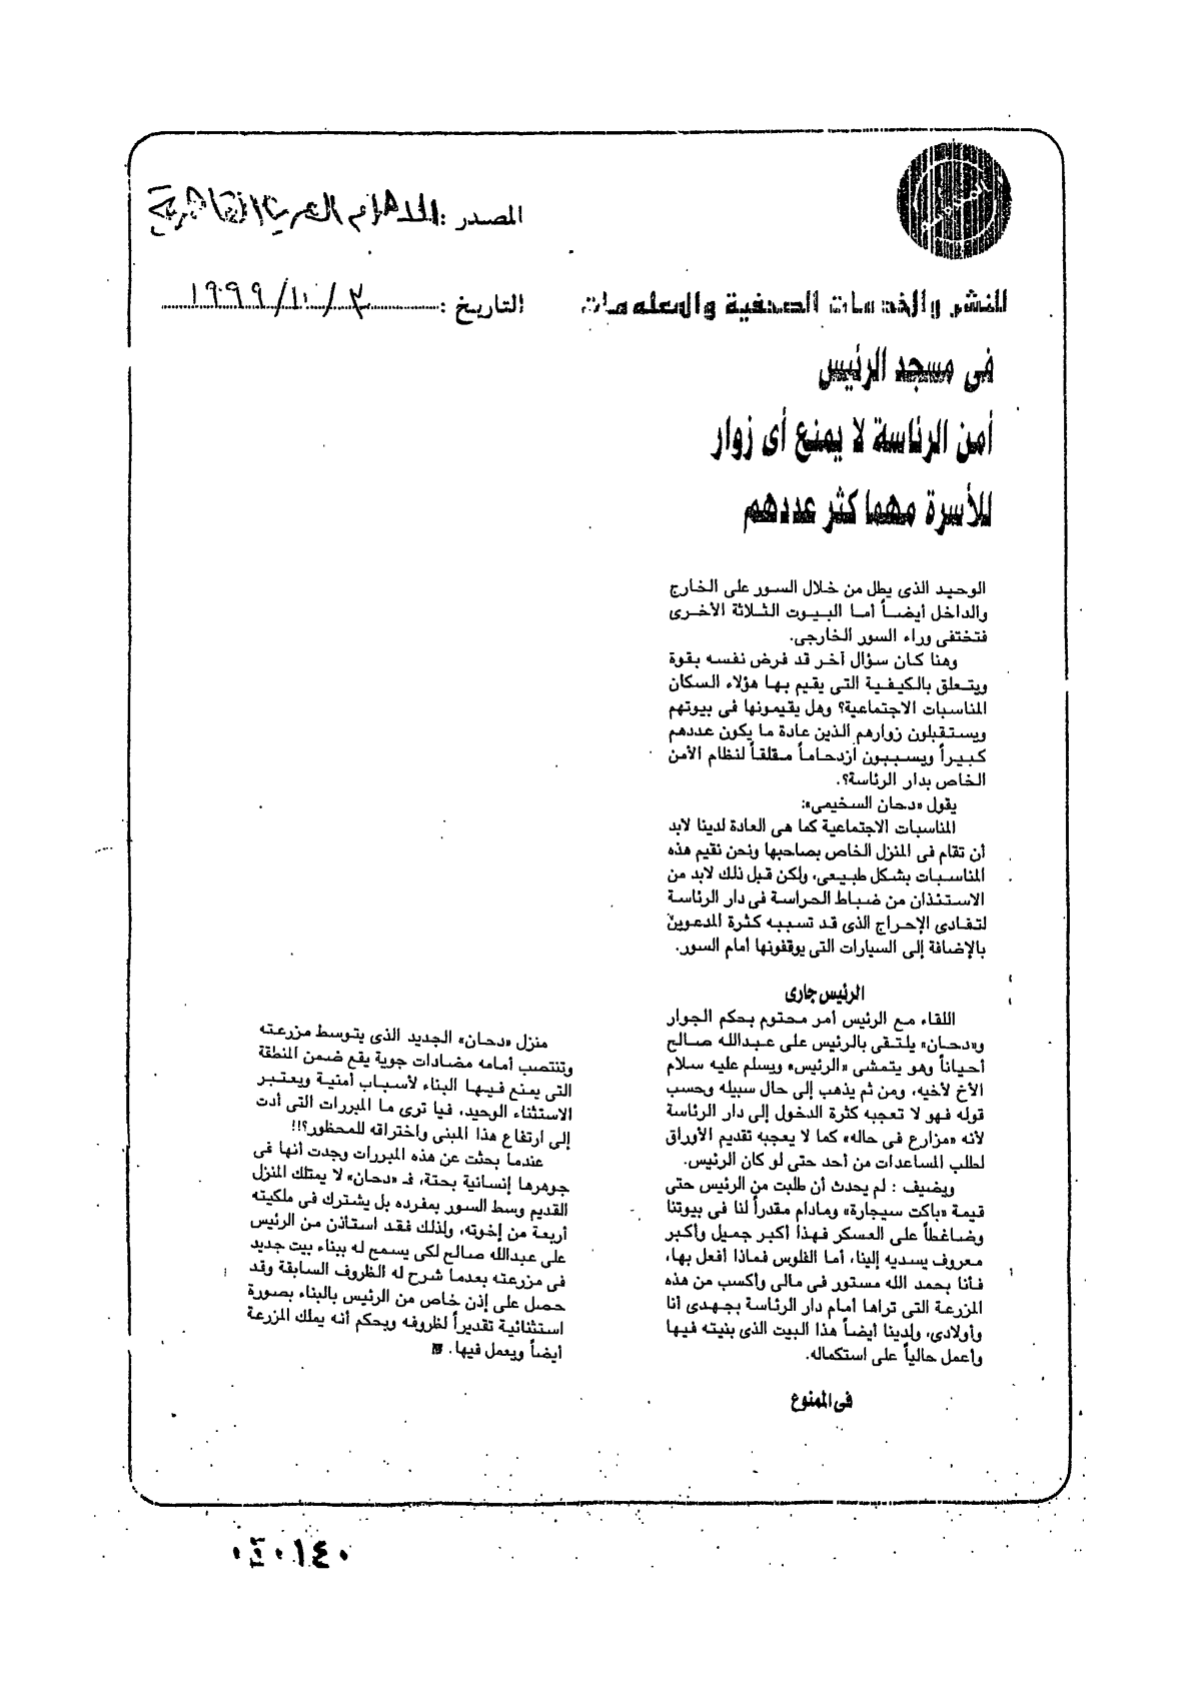 المصدر : الأهرام العربى القاهرية
التاريخ : ٣ / ١٠ / ١٩٩٩
للنشر والخدمات الصحفية والمعلومات
فى مسجد الرئيس
أمن الرئاسة لا يمنع أى زوار
للأسرة مهما كثر عددهم
الوحيد الذى يطل من خلال السور على الخارج
والداخل أيضاً أما البيوت الثلاثة الأخرى
فتختفى وراء السور الخارجى.
وهنا كان سؤال آخر قد فرض نفسه بقوة
ويتعلق بالكيفية التى يقيم بها هؤلاء السكان
المناسبات الاجتماعية؟ وهل يقيمونها فى بيوتهم
ويستقبلون زوارهم الذين عادة ما يكون عددهم
كبيراً ويسببون ازدحاماً مقلقاً لنظام الأمن
الخاص بدار الرئاسة؟.
يقول «دحان السخيمى»:
المناسبات الاجتماعية كما هى العادة لدينا لابد
أن تقام فى المنزل الخاص بصاحبها ونحن نقيم هذه
المناسبات بشكل طبيعى، ولكن قبل ذلك لابد من
الاستئذان من ضباط الحراسة فى دار الرئاسة
لتفادى الإحراج الذى قد تسببه كثرة المدعوين
بالإضافة إلى السيارات التى يوقفونها أمام السور.
الرئيس جارى
اللقاء مع الرئيس أمر محتوم بحكم الجوار
و«دحان» يلتقى بالرئيس على عبدالله صالح
أحياناً وهو يتمشى «الرئيس» ويسلم عليه سلام
الأخ لأخيه، ومن ثم يذهب إلى حال سبيله وحسب
قوله فهو لا تعجبه كثرة الدخول إلى دار الرئاسة
لأنه «مزارع فى حاله» كما لا يعجبه تقديم الأوراق
لطلب المساعدات من أحد حتى لو كان الرئيس.
ويضيف : لم يحدث أن طلبت من الرئيس حتى
قيمة «باكت سيجارة» ومادام مقدراً لنا فى بيوتنا
وضاغطاً على العسكر فهذا أكبر جميل وأكبر
معروف يسديه إلينا، أما الفلوس فماذا أفعل بها،
فأنا بحمد الله مستور فى مالى وأكسب من هذه
المزرعة التى تراها أمام دار الرئاسة بجهدى أنا
وأولادى، ولدينا أيضاً هذا البيت الذى بنيته فيها
وأعمل حالياً على استكماله.
فى الممنوع
منزل «دحان» الجديد الذى يتوسط مزرعته
وتنتصب أمامه مضادات جوية يقع ضمن المنطقة
التى يمنع فيها البناء لأسباب أمنية ويعتبر
الاستثناء الوحيد، فيا ترى ما المبررات التى أدت
إلى ارتفاع هذا المبنى واختراقه للمحظور؟!!
عندما بحثت عن هذه المبررات وجدت أنها فى
جوهرها إنسانية بحتة، فـ «دحان» لا يمتلك المنزل
القديم وسط السور بمفرده بل يشترك فى ملكيته
أربعة من إخوته، ولذلك فقد استأذن من الرئيس
على عبدالله صالح لكى يسمح له ببناء بيت جديد
فى مزرعته بعدما شرح له الظروف السابقة وقد
حصل على إذن خاص من الرئيس بالبناء بصورة
استثنائية تقديراً لظروفه وبحكم أنه يملك المزرعة
أيضاً ويعمل فيها.